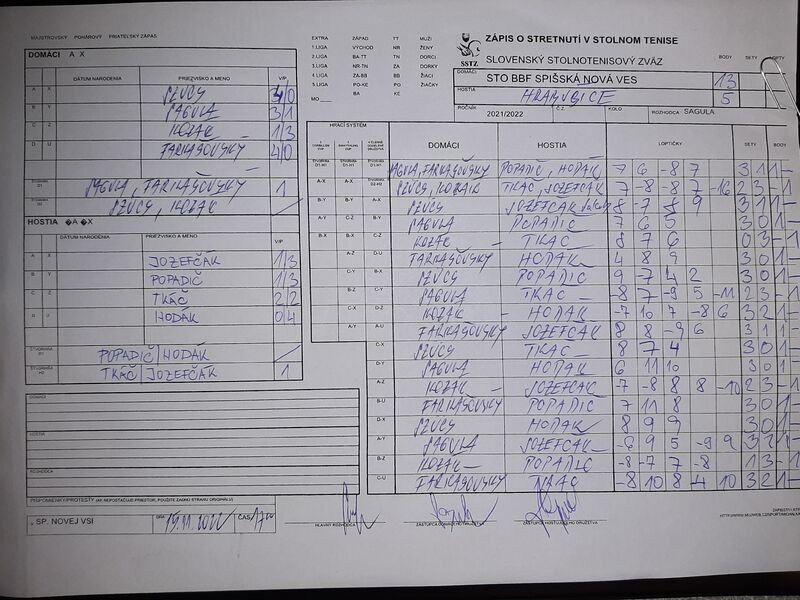 MAJSTROVSKÝ POHÁROVÝ PRIATEĽSKÝ ZÁPAS
EXTRA ZÁPAD TT MUŽI
1.LIGA VÝCHOD NR ŽENY
2.LIGA BA-TT TN DORCI
3.LIGA NR-TN ZA DORKY
4.LIGA ZA-BB BB ŽIACI
5.LIGA PO-KE PO ŽIAČKY
MO BA KE
SSTZ
ZÁPIS O STRETNUTÍ V STOLNOM TENISE
SLOVENSKÝ STOLNOTENISOVÝ ZVÄZ
BODY SETY LOPTY
DOMÁCI STO BBF SPIŠSKÁ NOVÁ VES 13
HOSTIA HRABUŠICE 5
ROČNÍK 2021/2022 Č.Z. KOLO ROZHODCA SAGULA
DOMÁCI A X
DÁTUM NARODENIA PRIEZVISKO A MENO V/P
A X SZUCS 4/0
B Y SAGULA 3/1
C Z KOZÁK 1/3
D U FARKAŠOVSKÝ 4/0
SAGULA, FARKAŠOVSKÝ 1
SZUCS, KOZÁK /
HOSTIA �A �X
DÁTUM NARODENIA PRIEZVISKO A MENO V/P
A X JOZEFČÁK 1/3
B Y POPADIČ 1/3
C Z TKÁČ 2/2
HODÁK 0/4
POPADIČ/HODÁK /
TKÁČ/JOZEFČÁK 1
DOMÁCI
HOSTIA
ROZHODCA
HRACÍ SYSTÉM
DOMÁCI HOSTIA LOPTIČKY SETY BODY
SAGULA, FARKAŠOVSKÝ POPADIČ, HODAK 7 6 -8 7 3 1 1 -
A-X SZUCS, KOZAK TKAC, JOZEFCAK 7 -8 -8 7 -16 2 3 - 1
B-Y A-Y B-X SZUCS JOZEFCAK 8 -7 8 9 3 1 1 -
A-Y C-Z B-Y SAGULA POPADIC 7 6 5 3 0 1 -
B-X B-X C-Z KOZAC TKAC 8 7 6 0 3 - 1
A-Z D-U FARKAŠOVSKY HODAK 4 8 9 3 0 1 -
C-Y B-X SZUCS POPADIC 9 -7 4 2 3 0 1 -
B-Z C-Y SAGULA TKAC -8 7 -9 5 -11 2 3 - 1
C-X D-Z KOZAC HODAK -7 10 7 -8 6 3 2 1 -
A-Y A-U FARKAŠOVSKY JOZEFCAK 8 8 -9 6 3 1 1 -
C-X SZUCS TKAC 8 7 4 3 0 1 -
D-Y SAGULA HODAK 6 11 10 3 0 1 -
A-Z KOZAK JOZEFCAK -7 -8 8 8 -10 2 3 - 1
B-U FARKAŠOVSKY POPADIC 7 11 8 3 0 1 -
D-X SZUCS HODAK 8 9 9 3 0 1 -
A-Y SAGULA JOZEFCAK -6 9 5 -9 9 3 2 1 -
B-Z KOZAC POPADIC -8 -7 7 -8 1 3 - 1
C-U FARKAŠOVSKY TKAC -8 10 8 -4 10 3 2 1 -
PRIPOMIENKY/PROTESTY (AK NEPOSTAČUJE PRIESTOR, POUŽITE ZADNÚ STRANU ORIGINÁLU)
V SP. NOVEJ VSI DŇA 19.11.2022 ČAS 17
HLAVNÝ ROZHODCA ZÁSTUPCA DOMÁCEHO DRUŽSTVA ZÁSTUPCA HOSŤUJÚCEHO DRUŽSTVA